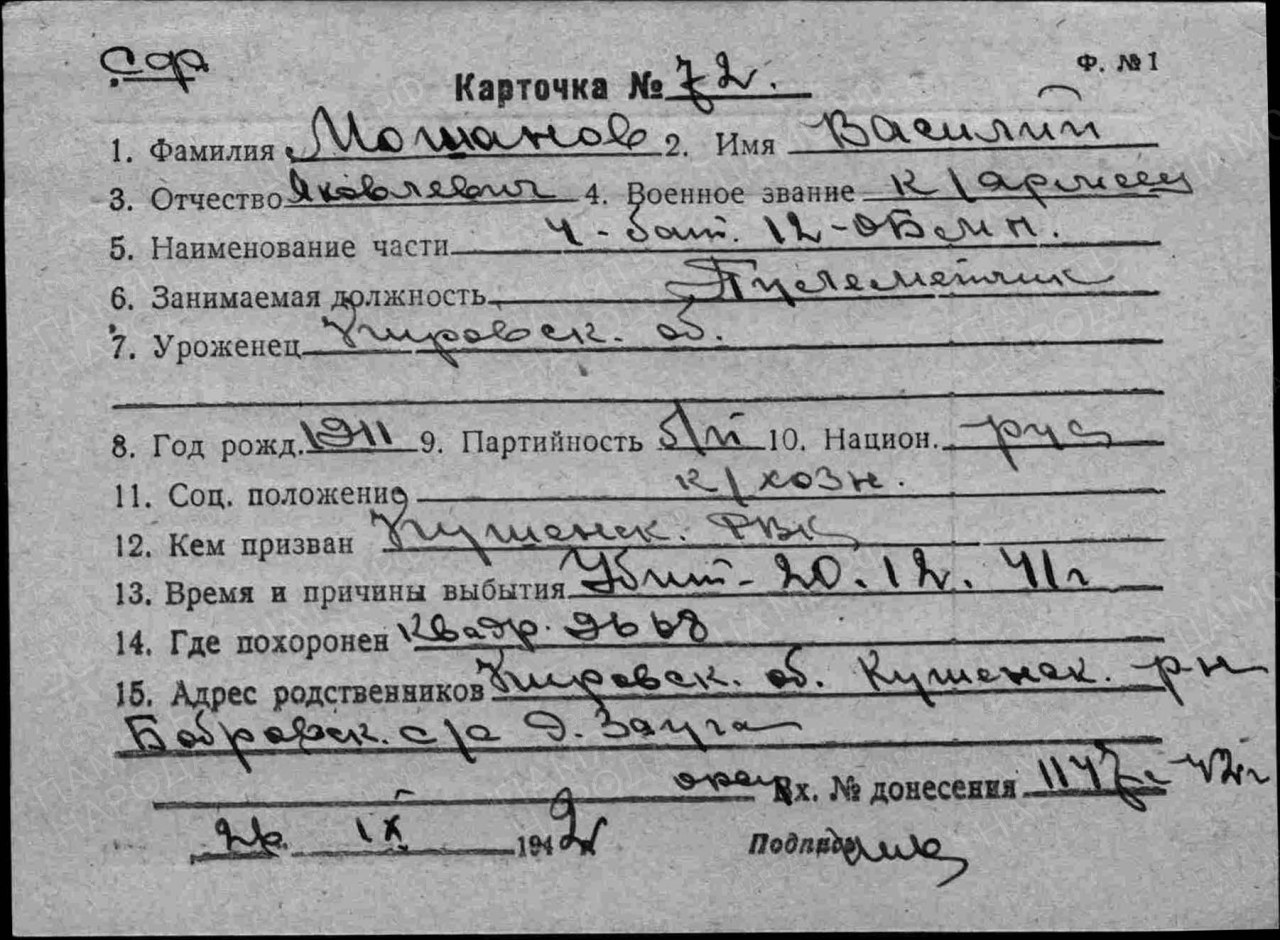 Сдр.
Ф. №1
Карточка № 72.
1. Фамилия Мошанов 2. Имя Василий
3. Отчество Яковлевич 4. Военное звание к/армеец
5. Наименование части 4-бат. 12-ОБмп.
6. Занимаемая должность Пулеметчик
7. Уроженец Кировск. об.
8. Год рожд. 1911 9. Партийность б/п 10. Национ. рус
11. Соц. положение к/хозн.
12. Кем призван Кушенск. РВК
13. Время и причины выбытия Убит - 20.12.41г
14. Где похоронен Квадр.
15. Адрес родственников Кировск. об. Кушенск. р-н
Бобровск. с/с д. Зауга
Вх. № донесения 1147с 42г
26. IX 1942
Подпись